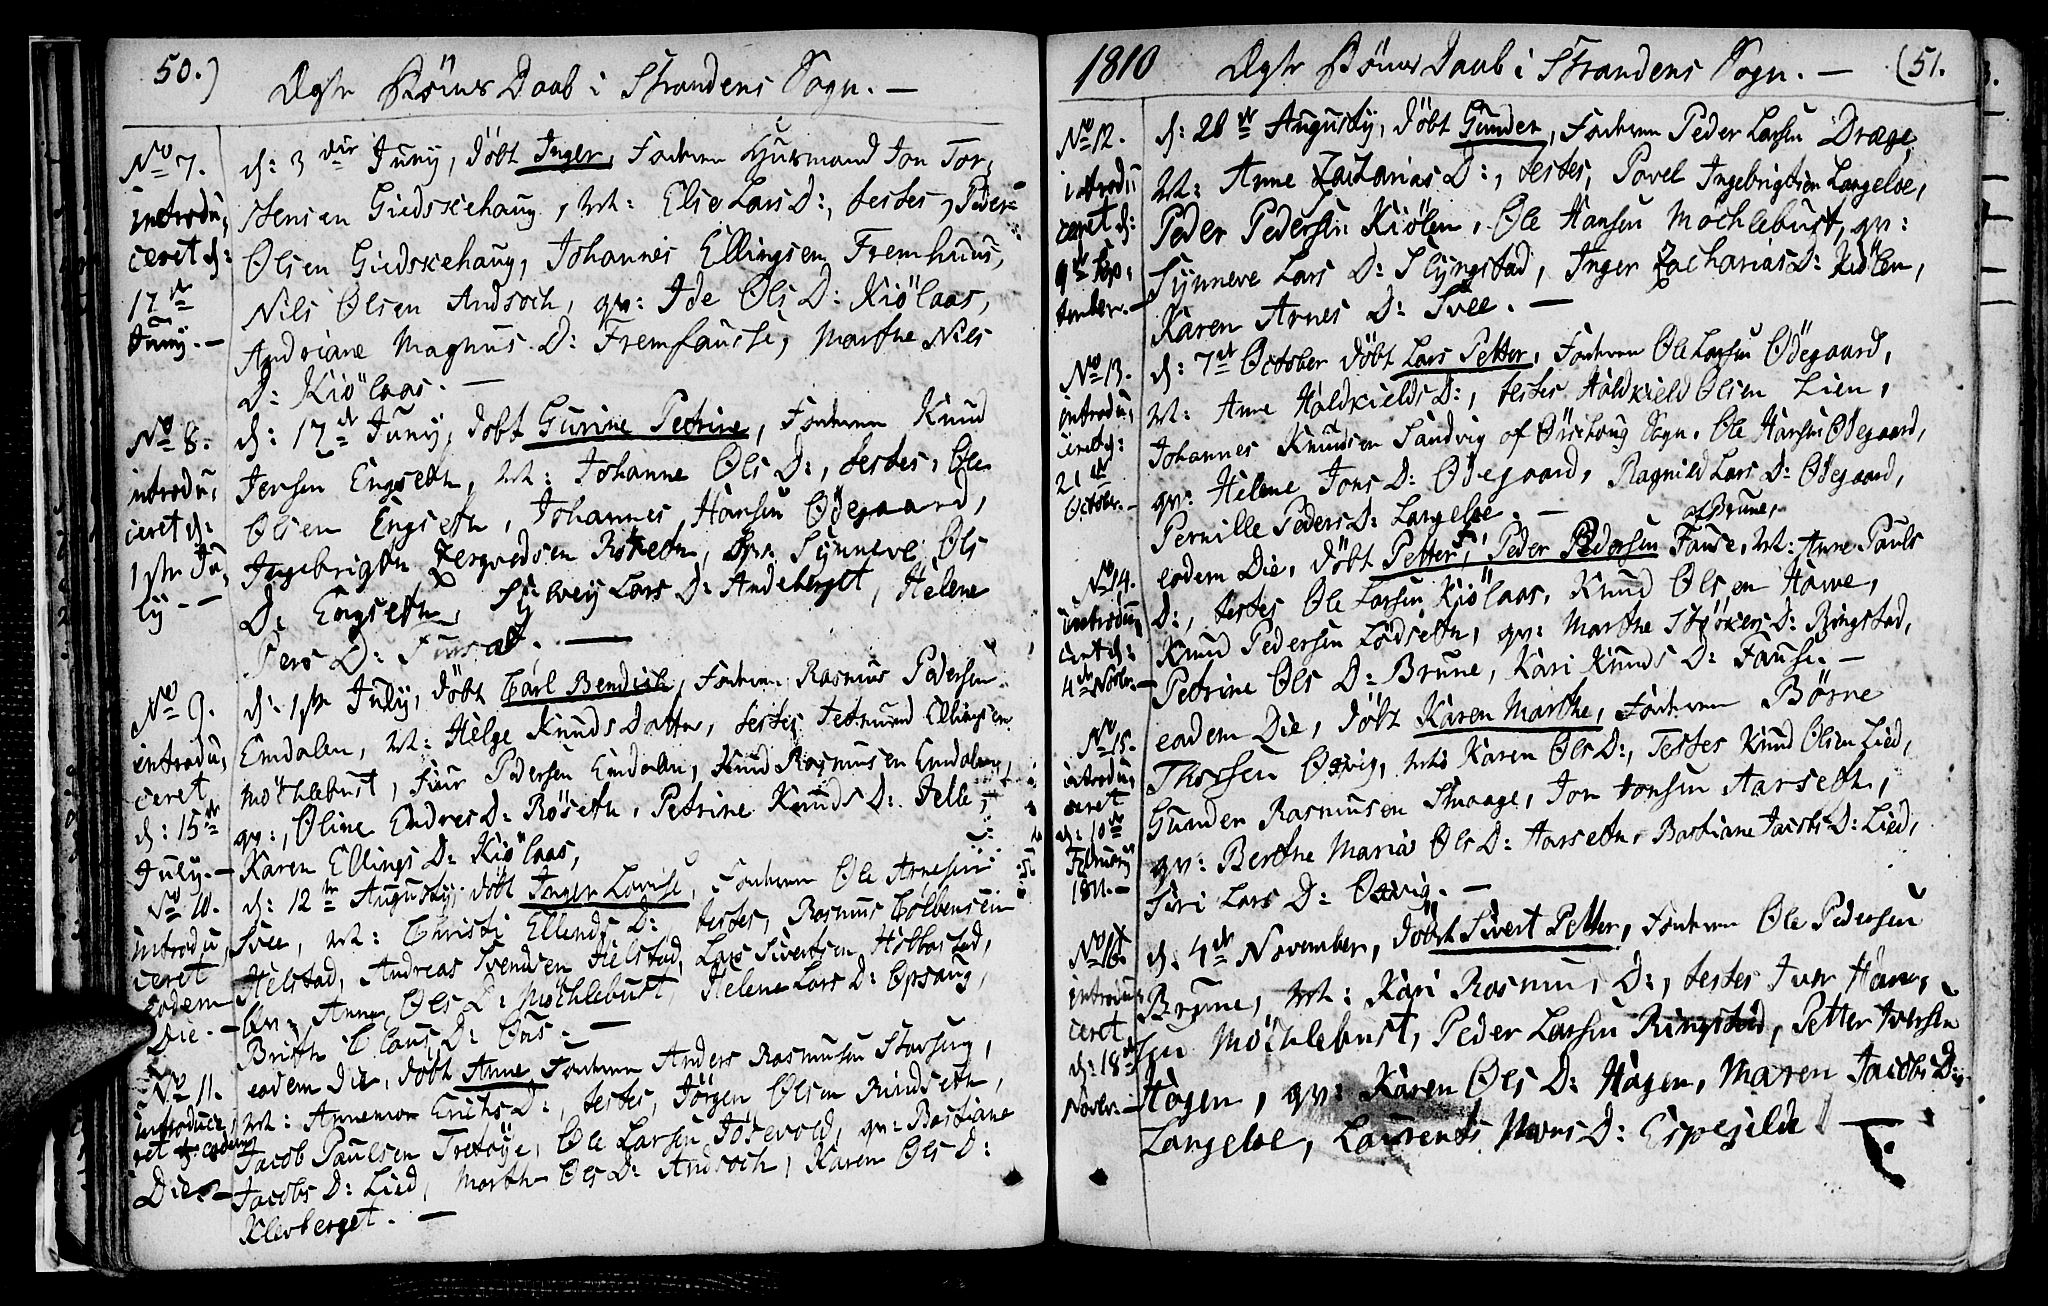 50.)
Ægte Börns Daab i Strandens Sogn. —
No 7.
introdu,
ceret d:
17de
Juny. —
d: 3die Juny, döbt Inger, Forældrene Huusmand Jon Tor,
stensen Giedskehaug, M: Else Lars D:, testes, Peder
Olsen Giedskehaug, Johannes Ellingsen Fremhuus,
Nils Olsen Andsoch, qv: Ide Ols D: Kiölaas,
Andriane Magnus D: Fremfause, Marthe Nils
D: Kiölaas. —
No 8.
introdu,
ceret d:
1ste Ju,
ly. —
d: 17de Juny, döbt Gurine Petrine, Forældrene Knud
Jensen Engseth, M: Johanne Ols D:, testes, Ole
Olsen Engseth, Johannes Hansen Ödegaard,
Ingebrigt Sergvedsen Röseth, qv: Synneve Ols
D: Engseth, Sylvey Lars D: Andeberget, Helene
Pers D: Fursæt. —
No 9.
introdu,
ceret
d: 15de
July. —
d: 1ste July, döbt Carl Bendich, Forældrene Rasmus Pedersen
Emdalen, M: Helge Knuds Datter, testes Tetmund Ellingsen
Möchlebust, Siur Pedersen Emdalen, Knud Rasmusen Emdalen,
qv:, Oline Endres D: Röseth, Petrine Knuds D: Jelle,
Karen Ellings D: Kiölaas,
No 10.
introdu,
ceret
eodem
Die. —
d: 12te Augusty, döbt Inger Lovise, Forældrene Ole Arnesen
Svee, M: Christi Ellends D:, testes, Rasmus Colbensen
Helstad, Andreas Svendsen Helstad, Lars Sivertsen Hölbastad,
qv: Anne Ols D: Möchlebust, Helene Lars D: Opsaug,
Brithe Claus D: Öus. —
No 11.
introduce,
ret eodem
Die. —
eodem Die, döbt Anne Forældrene Anders Rasmusen Stavseng,
M: Annemor Erichs D:, testes, Jörgen Olsen Rindseth,
Jacob Paulsen Tretöye, Ole Larsen Jösevold, qv: Bastiane
Jacobs D: Lied, Marthe Ols D: Andsoch, Karen Ols D:
Klevberget. —
1810 Ægte Börns Daab i Strandens Sogn. — (51.
No 12.
introdu
ceret d:
9de Sep,
tember. —
d: 28de Augusty, döbt Gunder, Forældrene Peder Larsen Dræge,
M: Anne Zacharias D:, testes, Povel Ingebrigtsen Langeloe,
Peder Pedersen Kiölen, Ole Hansen Möchlebust, qv:
Synneve Lars D: Slyngstad, Inger Zacharias D: Kiölen,
Karen Arnes D: Svee. —
No 13.
introdu,
ceret d:
21de
October. —
d: 7de October döbt Lars Petter, Forældrene Ole Larsen Ödegaard,
M: Anne Haldkields D:, testes Haldkield Olsen Lien,
Johannes Knudsen Sandvig af Örschoug Sogn, Ole Hansen Ödegaard,
qv: Helene Jons D: Ödegaard, Ragnild Lars D: Ödegaard,
Pernille Peders D: Langeloe. —
No 14.
introdu,
ceret d:
4de Novbr. —
af Brune,
eodem Die, döbt Petter, Peder Pedersen Fause, M: Anne Pauls
D:, testes Ole Larsen Kiölaas, Knud Olsen Hawe,
Knud Pedersen Lödseth, qv: Marthe Styrkers D: Ringstad,
Petrine Ols D: Brune, Kari Knuds D: Fause. —
No 15.
introdu,
ceret
d: 10de
February
1811. —
eadem Die, döbt Karen Marthe, Forældrene Börne
Thorsen Osvig, M: Karen Ols D:, Testes Knud Olsen Lied,
Gunder Rasmusen Smaage, Jon Jonsen Aarseth,
qv: Berthe Maria Ols D: Aarseth, Bastiane Jacobs D: Lied,
Siri Lars D: Osvig. —
No 16.
introdu,
ceret
d: 18de
Novbr. —
d: 4de November, döbt Sivert Petter, Forældrene Ole Pedersen
Brune, M: Kari Rasmus, D:, testes Iver Han,
sen Möchlebust, Peder Larsen Ringstad, Petter Iversen
Hagen, qv: Karen Ols D: Hagen, Maren Jacobs D:
Langeloe, Laurents Mons D: Espejilde